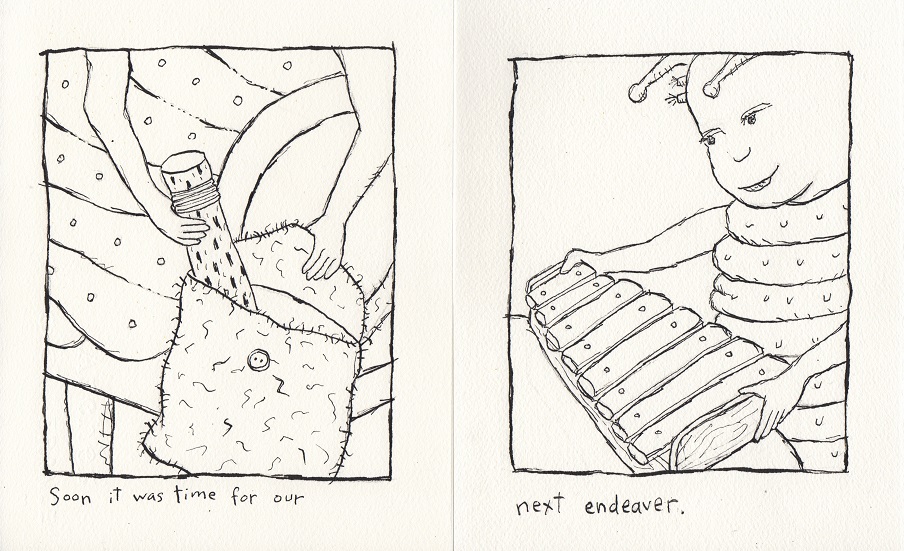 Soon it was time for our
next endeaver.